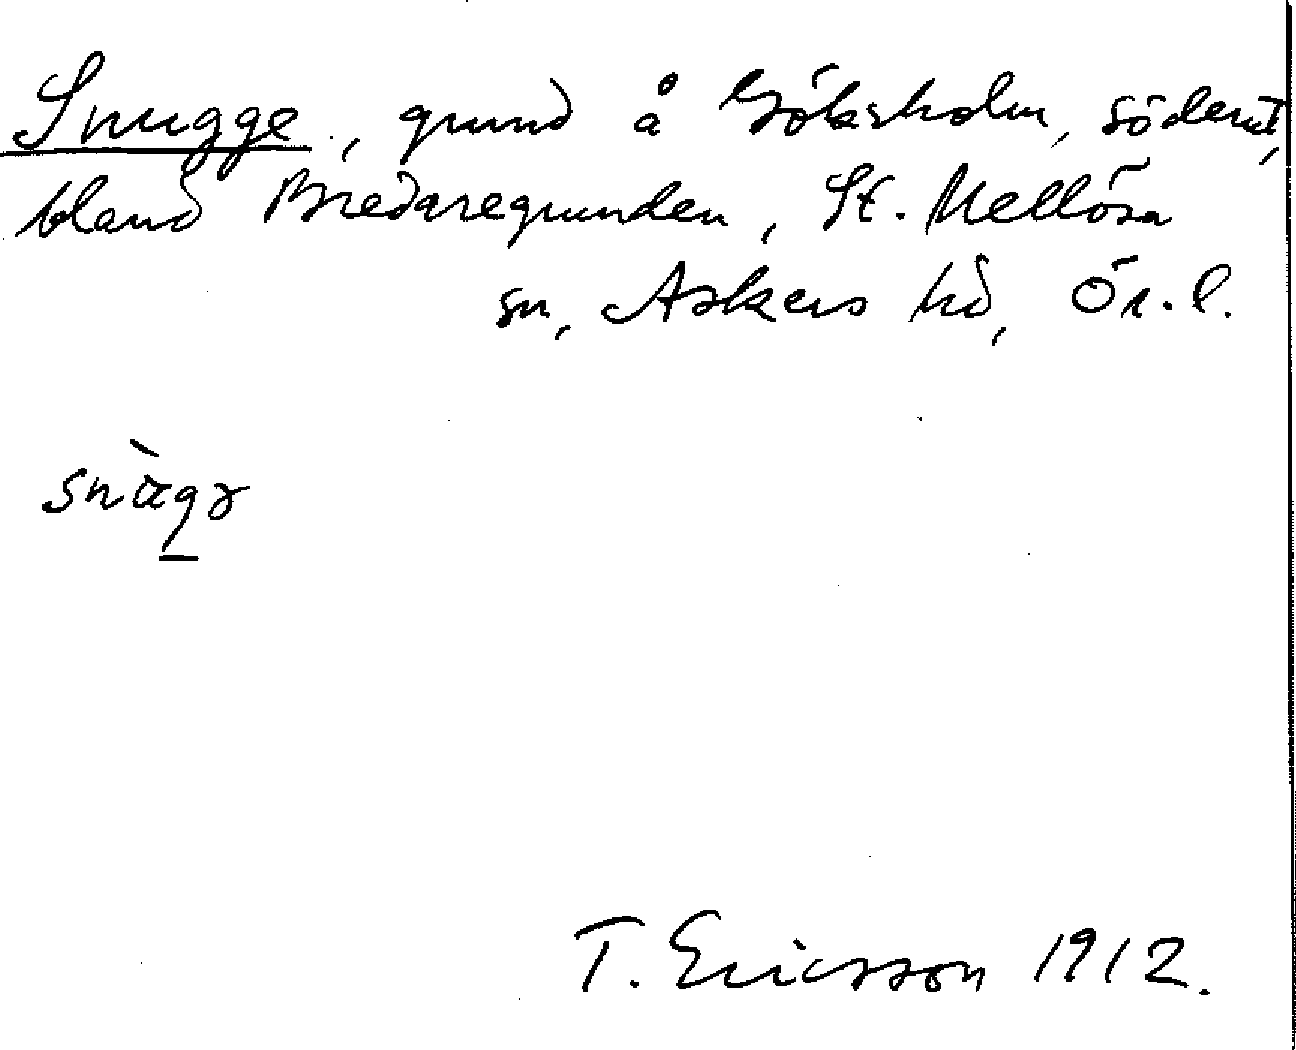 Snugge, grund å Göksholm, söderut,
bland Bredaregrunden, St. Mellösa
sn, Askers hd, Ör. l.
T. Ericsson 1912.